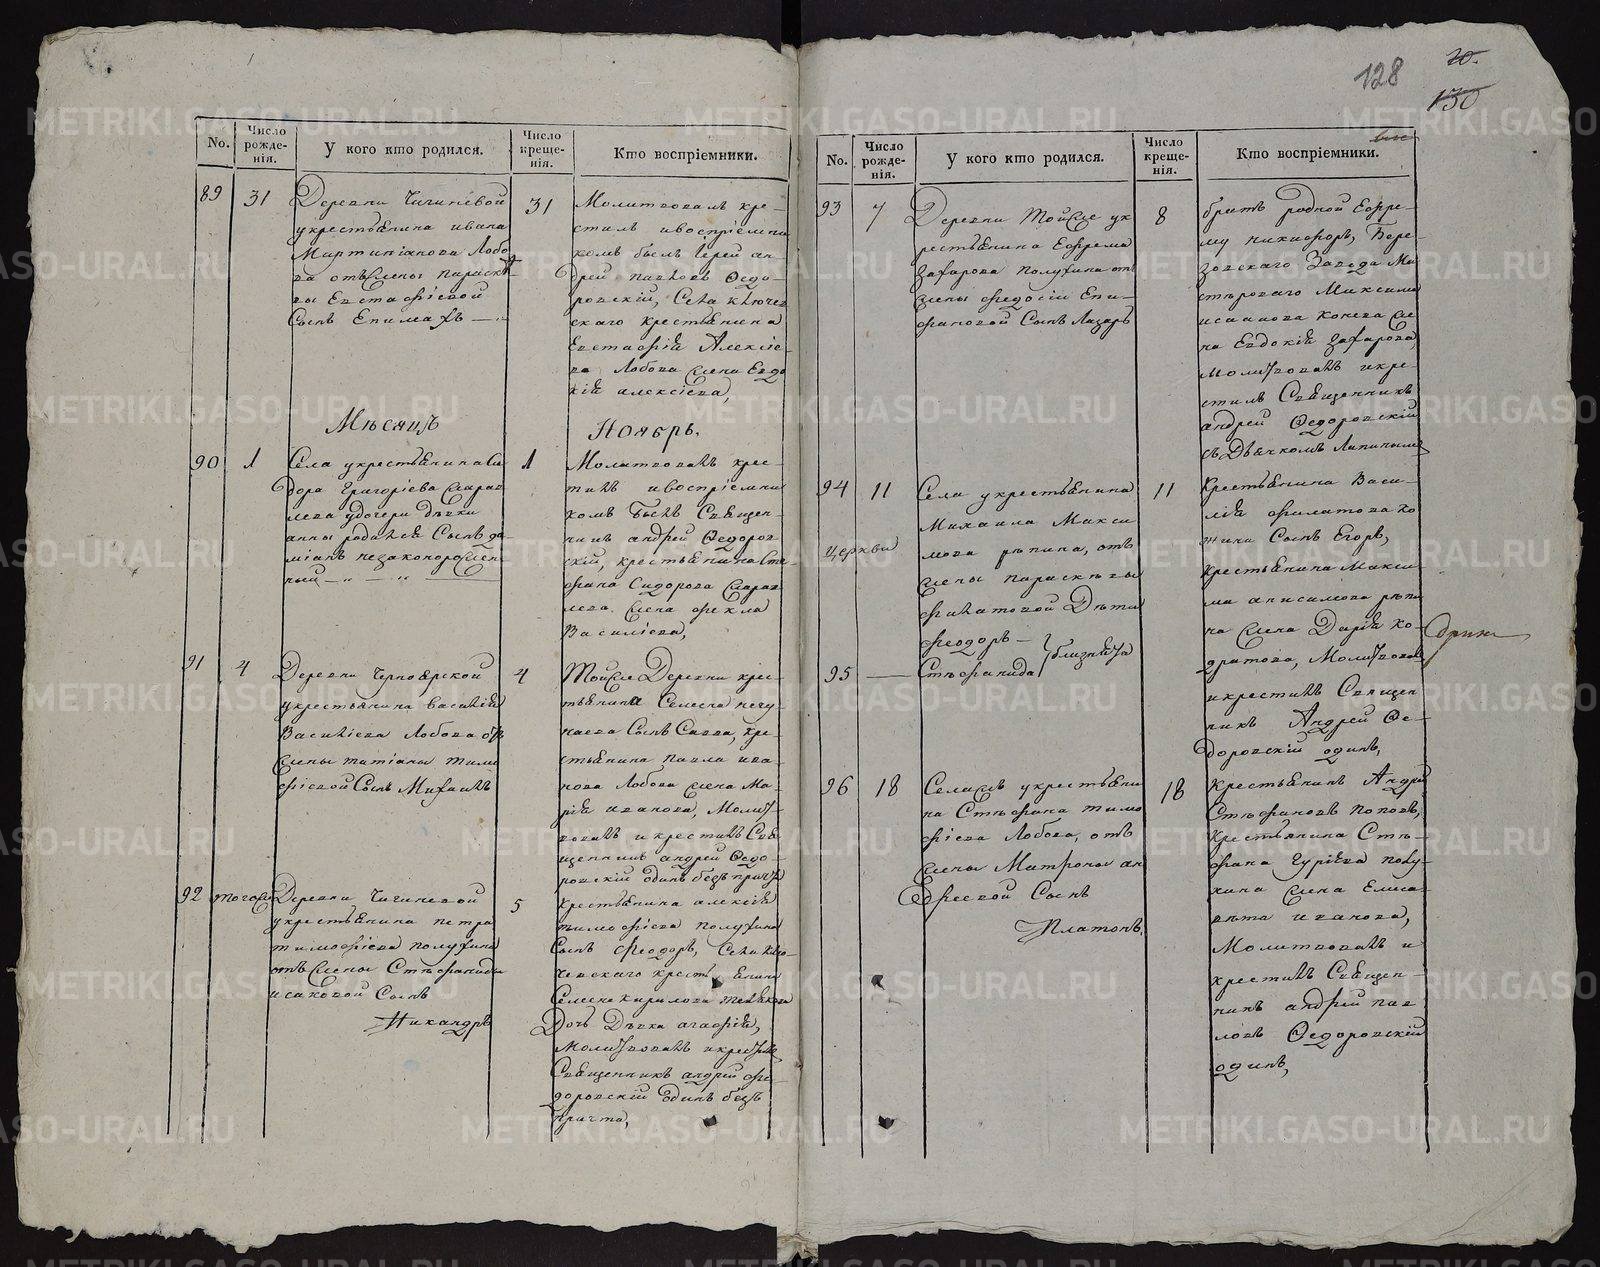 128
20.
130
No.
Число рожденія.
У кого кто родился.
Число крещенія.
Кто воспріемники.
89
31
Деревни Чичиневой
укрестьянина ивана
Мартиніанова Лобо
ва отжены параскѣ
вы Евстафіевой
Сынъ Епимахъ
31
Молитвовалъ кре-
стилъ ивоспріемни
комъ былъ Іерей ан
дрей павловъ Ѳедо-
ровскій, Села ключев
скаго крестьянина
Евстафія Алексіе-
ва Лобова жена Евдо
кія алексіева,
Мѣсяцъ
Ноябрь.
90
1
Села укрестьянина Си
дора Григоріева
удочери дѣвки
анны родился Сынъ да
міанъ незаконорожден
ный
1
Молитвовалъ крес-
тилъ ивоспріемни
комъ бысть Священ-
никъ андрей Ѳедоров
скій, крестьянина Сте
фана Сидорова
жена фекла
Василіева,
91
4
Деревни Черноярской
укрестьянина василія
Василіева Лобова отъ
жены татіаны тимо
фіевой Сынъ Михаилъ
4
Тойже Деревни крес-
тьянина
Сынъ Савва, кре-
стьянина павла ива
нова Лобова жена Ма-
рія иванова, Молит-
вовалъ и крестилъ Свя
щенникъ андрей Ѳедо-
ровскій одинъ безъ причта
92
тогоже
Деревни Чичиневой
укрестьянина петра
тимофіева полухина
отъ жены Стефаниды
исаковой Сынъ
Никандръ
5
крестьянина алексія
тимофіева полухина
Сынъ феодоръ, Села клю-
чевскаго крестьянина
кирилова
Дочь Дѣвка агафія,
Молитвовалъ икрестилъ
Священникъ андрей фе-
доровскій одинъ безъ
причта,
No.
Число рожденія.
У кого кто родился.
Число крещенія.
Кто воспріемники.
93
7
Деревни Тойже ук
рестьянина Ефрема
Захарова полухина отъ
жены федосіи Епи-
фановой Сынъ Лазарь
8
братъ родной Ефре-
му никифоръ, Бере-
зовскаго Завода Ма
стероваго Максима
жe
на Евдокія Захарова,
Молитвовалъ икре-
стилъ Священникъ
андрей Ѳедоровскій
съ Дьячкомъ
94
11
церкви
Села укрестьянина
Михаила Макси
мова рѣпина, отъ
жены параскѣвы
филатовой Дѣти
феодоръ
95
Стефанида
близнята
11
Крестьянина Васи-
лія филатова
Сынъ Егоръ,
крестьянина Макси
ма анисимова рѣпи
на жена Дарія ко-
дратова, Молитвовалъ
икрестилъ Священ
никъ Андрей Ѳе-
доровскій одинъ,
96
18
Селажъ укрестьяни
на Стефана тимо
фіева Лобова, отъ
жены Матроны ан
дреевой Сынъ
Платонъ.
18
Крестьянинъ Андрей
Стефановъ поповъ,
Крестьянина Сте-
фана Гуріева полу-
хина жена Елиса-
вета иванова,
Молитвовалъ и
крестилъ Священ-
никъ андрей пав
ловъ Ѳедоровскій
одинъ,
METRIKI.GASO-URAL.RU